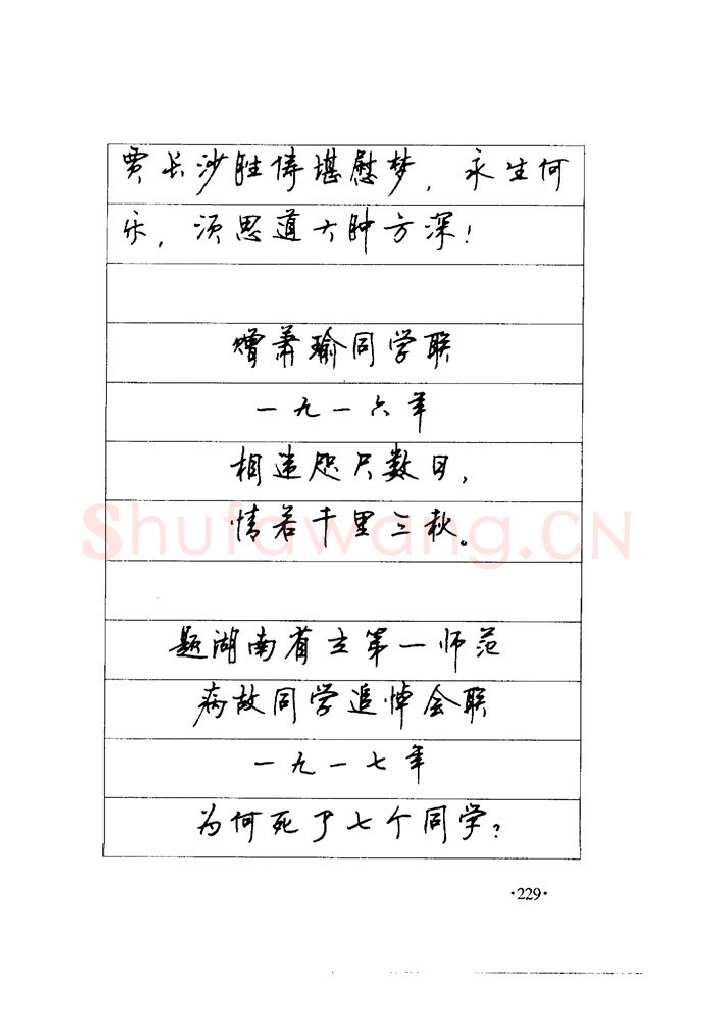 贾长沙胜俦堪慰梦，永生何
乐，须思道大肿方深！
赠萧瑜同学联
一九一六年
相违咫尺数日，
情若千里三秋。
Shufawang.CN
题湖南省立第一师范
病故同学追悼会联
一九一七年
为何死了七个同学？
·229·